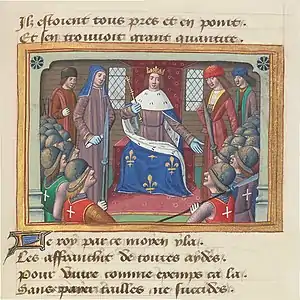 Ilz estoient tous prez et en point.
Et sen trouvoit grant quantite.
Le roy par ce moyen yla.
Les affranchit de toutes aydes.
Pour vivre comme exemps ca la.
Sans payer tailles ne succides.